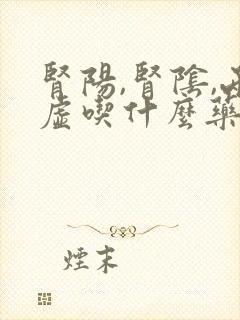 腎陽,腎陰,
虛喫什麼藥
煙末